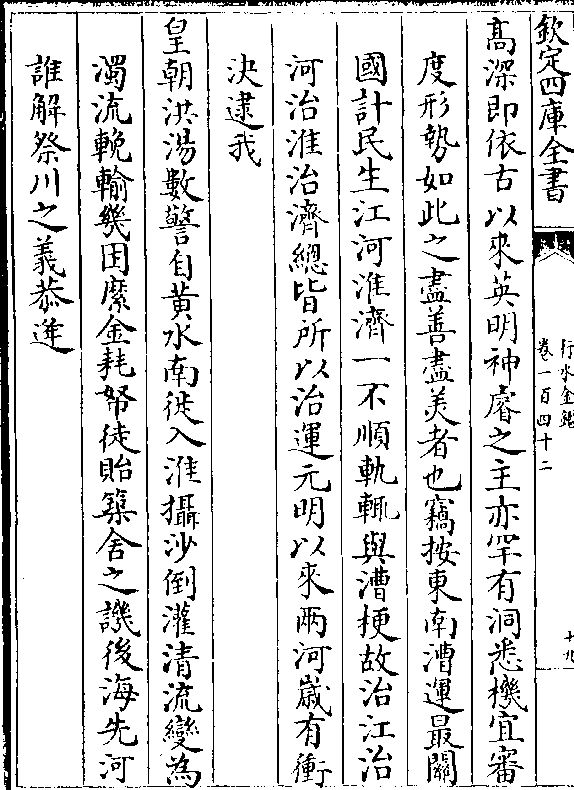 欽定四庫全書
行水金鑑
卷一百四十二
十九
高深即依古以來英明神睿之主亦罕有洞悉機宜審
度形勢如此之盡善盡美者也竊按東南漕運最關
國計民生江河淮濟一不順軌輒與漕梗故治江治
河治淮治濟總皆所以治運元明以來兩河歲有衝
決逮我
皇朝洪湯數警自黃水南徙入淮攝沙倒灌清流變為
濁流輓輸幾困縻金耗帑徒貽築舍之譏後海先河
誰解祭川之義恭逢